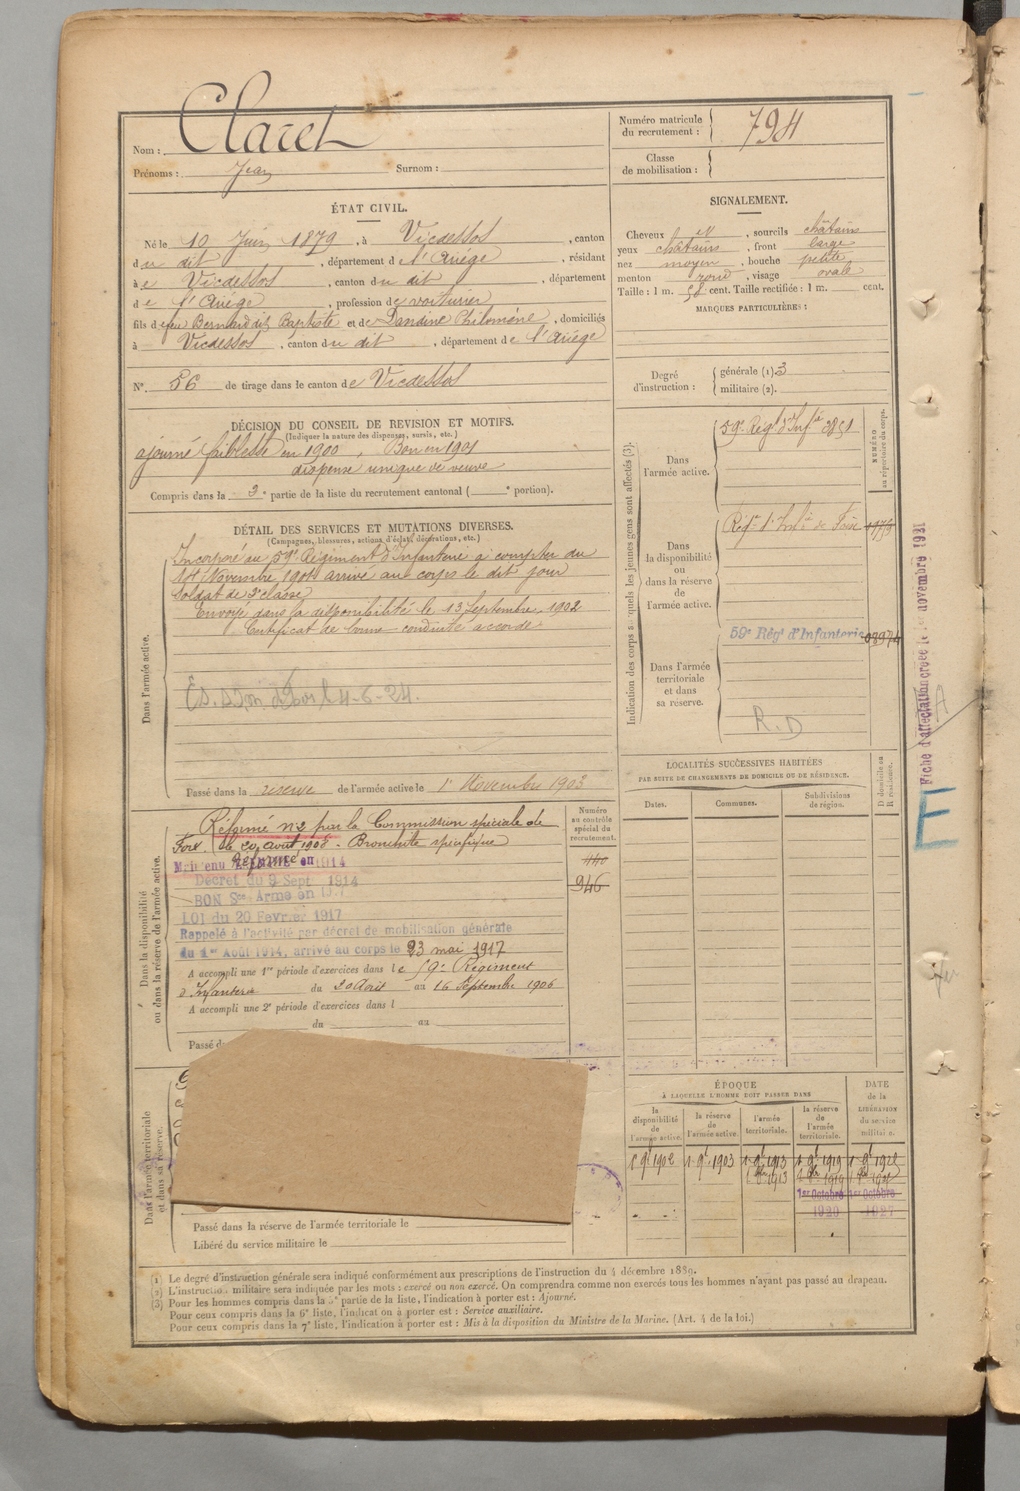 Nom : Claret
Prénoms : Jean Surnom :
ÉTAT CIVIL.
Né le 10 Juin 1879, à Vicdessos, canton
du dit, département de l'Ariège, résidant
à Vicdessos, canton du dit, département
de l'Ariège, profession de voiturier
fils de feu Bernard dit Baptiste et de Dandine Philomène, domiciliés
à Vicdessos, canton du dit, département de l'Ariège
N°. 56 de tirage dans le canton de Vicdessos
DÉCISION DU CONSEIL DE REVISION ET MOTIFS.
(Indiquer la nature des dispenses, sursis, etc.)
ajourné faiblesse en 1900, Bon en 1901
dispense unique de veuve
Compris dans la 3e partie de la liste du recrutement cantonal ( e portion).
DÉTAIL DES SERVICES ET MUTATIONS DIVERSES.
(Campagnes, blessures, actions d'éclat, décorations, etc.)
Dans l'armée active.
Incorporé au 59e Régiment d'Infanterie à compter du
14 Novembre 1901 arrivé au corps le dit jour
soldat de 2e classe
Envoyé dans la disponibilité le 13 Septembre 1902
Certificat de bonne conduite accordé
4-6-24.
Passé dans la réserve de l'armée active le 1er Novembre 1903
Dans la disponibilité
ou dans la réserve de l'armée active.
Numéro
au contrôle
spécial du
recrutement.
440
946
Réformé n°2 par la Commission spéciale de
Foix le 20 août 1908 - Bronchite spécifique
Maintenu Réformé en 1914
Décret du 9 Sept 1914
BON Sce Armé en
LOI du 20 Fevrier 1917
Rappelé à l'activité par décret de mobilisation générale
du 1er Août 1914, arrivé au corps le 23 mai 1917
A accompli une 1re période d'exercices dans le 59e Régiment
d'Infanterie du 20 Août au 16 Septembre 1906
A accompli une 2e période d'exercices dans l
du au
Passé d
Dans l'armée territoriale
et dans sa réserve.
Passé dans la réserve de l'armée territoriale le
Libéré du service militaire le
Numéro matricule
du recrutement : 794
Classe
de mobilisation :
SIGNALEMENT.
Cheveux et, sourcils châtains
yeux châtains, front large
nez moyen, bouche petite
menton rond, visage ovale
Taille : 1 m. 58 cent. Taille rectifiée : 1 m. cent.
MARQUES PARTICULIÈRES :
Degré
d'instruction :
générale (1). 3
militaire (2).
Indication des corps auxquels les jeunes gens sont affectés (3).
NUMÉRO
au répertoire du corps.
Dans
l'armée active.
59e Régt d'Infie 3851
Dans
la disponibilité
ou
dans la réserve
de
l'armée active.
Régt d'Infie de Foix
Dans l'armée
territoriale
et dans
sa réserve.
59e Régt d'Infanterie
R.D
Fiche d'affectation créée le 1er novembre 1931
A
E
LOCALITÉS SUCCESSIVES HABITÉES
PAR SUITE DE CHANGEMENTS DE DOMICILE OU DE RÉSIDENCE.
Dates. Communes. Subdivisions
de région. D domicile ou
R résidence.
ÉPOQUE
À LAQUELLE L'HOMME DOIT PASSER DANS
la
disponibilité
de
l'armée active. la réserve
de
l'armée active. l'armée
territoriale. la réserve
de
l'armée
territoriale. DATE
de la
LIBÉRATION
du service
militaire.
1er 9bre 1902 1er 9bre 1903 1er 9bre 1913 1er 9bre 1919
1er Octobre 1er Octobre
1920 1927
(1) Le degré d'instruction générale sera indiqué conformément aux prescriptions de l'instruction du 4 décembre 1889.
(2) L'instruction militaire sera indiquée par les mots : exercé ou non exercé. On comprendra comme non exercés tous les hommes n'ayant pas passé au drapeau.
(3) Pour les hommes compris dans la 5e partie de la liste, l'indication à porter est : Ajourné.
Pour ceux compris dans la 6e liste, l'indication à porter est : Service auxiliaire.
Pour ceux compris dans la 7e liste, l'indication à porter est : Mis à la disposition du Ministre de la Marine. (Art. 4 de la loi.)